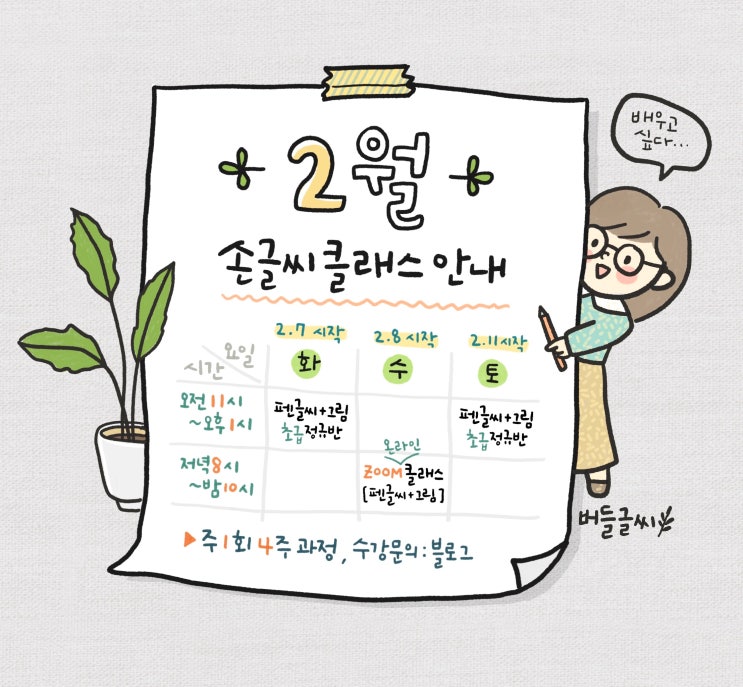 배우고
싶다...
2월
손글씨 클래스 안내
2.7 시작 2.8 시작 2.11 시작
요일
시간
화 수 토
오전 11시
~오후 1시
펜글씨+그림
초급정규반
펜글씨+그림
초급정규반
저녁 8시
~밤 10시
온라인
ZOOM 클래스
[펜글씨+그림]
▶ 주 1회 4주 과정, 수강문의 : 블로그
버들글씨